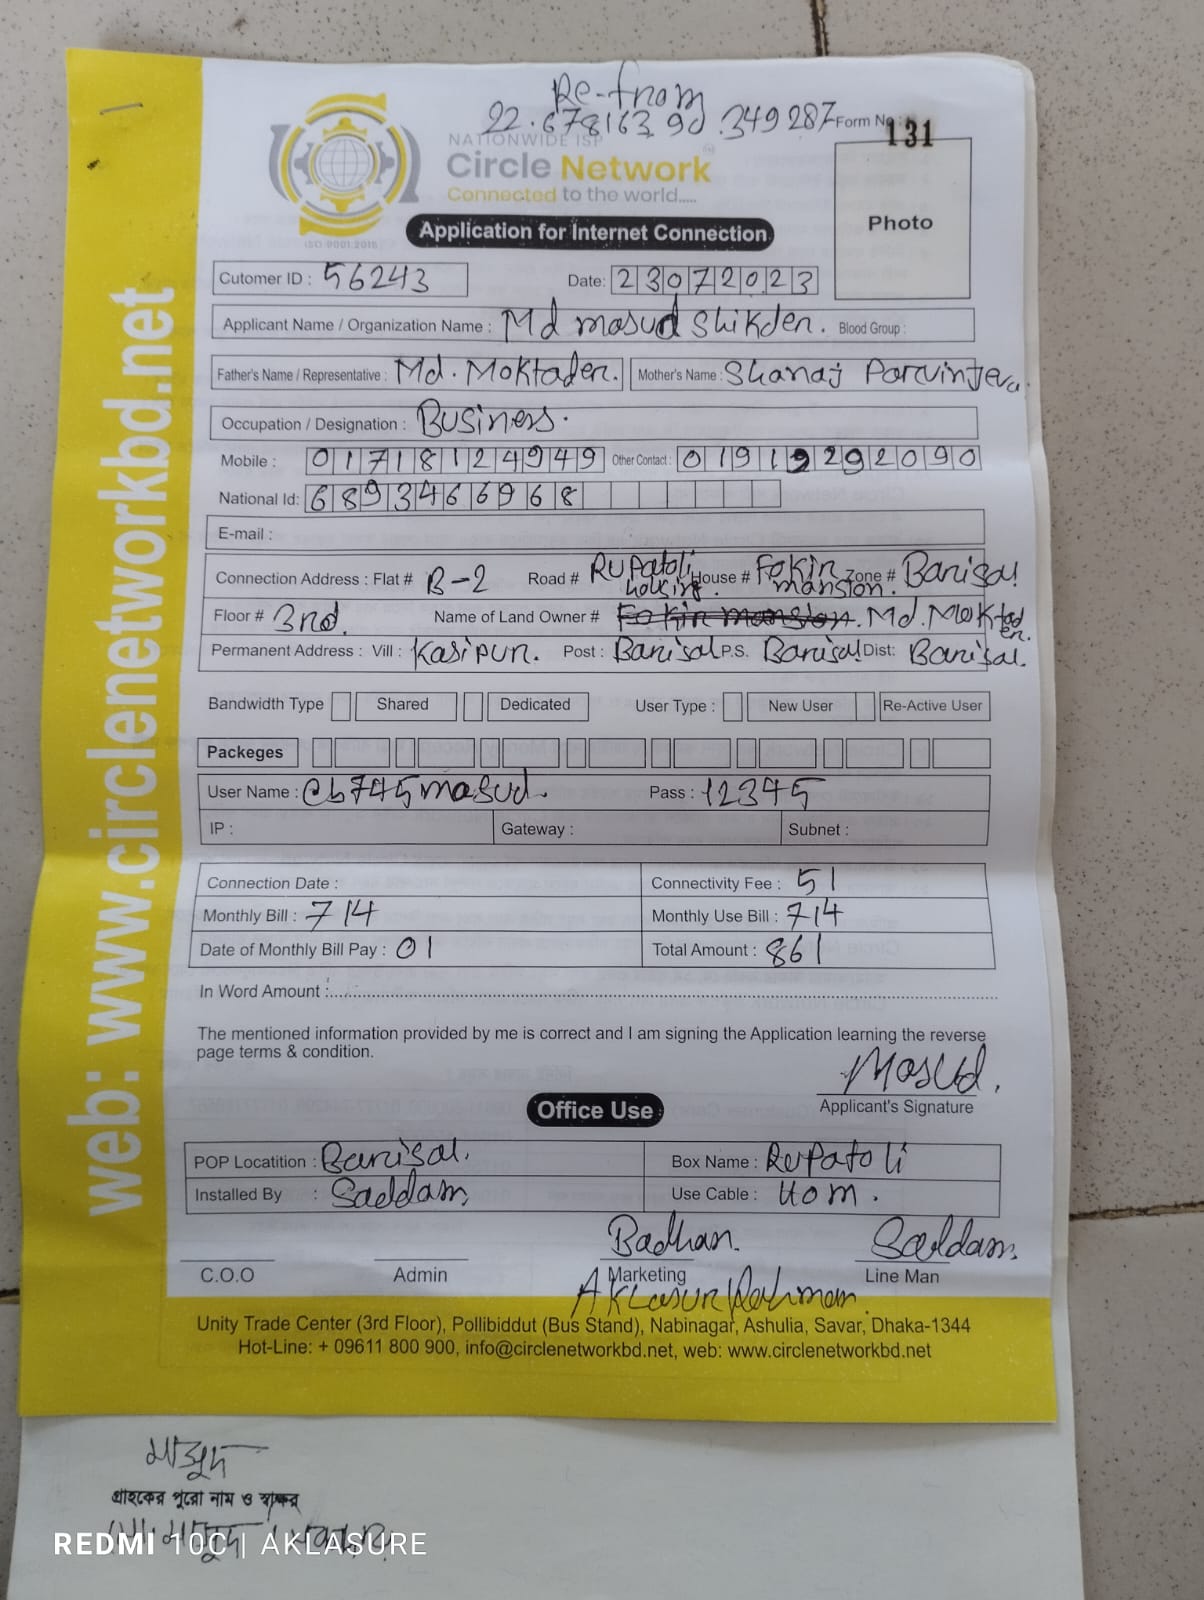 Re-from
22.678163 90.349287 Form No : 131
NATIONWIDE ISP
Circle Network
Connected to the world.....
ISO 9001:2015
Photo
Application for Internet Connection
Cutomer ID : 56243 Date: 23072023
Applicant Name / Organization Name : Md masud Shikder. Blood Group :
Father's Name / Representative : Md. Moktader. Mother's Name : Shanaj Parvin
Occupation / Designation : Business.
Mobile : 01718124949 Other Contact : 01919292090
National Id: 6893466968
E-mail :
Connection Address : Flat # B-2 Road # Rupatoli housing. House # Fokin mansion. Zone # Barisal
Floor # 3nd. Name of Land Owner # Fokin mansion. Md. Moktader.
Permanent Address : Vill : Kasipur. Post : Barisal P.S. Barisal Dist: Barisal.
Bandwidth Type Shared Dedicated User Type : New User Re-Active User
Packeges
User Name : cb745masud. Pass : 12345
IP : Gateway : Subnet :
Connection Date : Connectivity Fee : 51
Monthly Bill : 714 Monthly Use Bill : 714
Date of Monthly Bill Pay : 01 Total Amount : 861
In Word Amount :
The mentioned information provided by me is correct and I am signing the Application learning the reverse
page terms & condition.
Masud.
Applicant's Signature
Office Use
POP Locatition : Barisal. Box Name : Rupatoli
Installed By : Saddam Use Cable : 40m.
Badhan. Saddam.
C.O.O Admin Marketing Line Man
Aklasur Rahman.
Unity Trade Center (3rd Floor), Pollibiddut (Bus Stand), Nabinagar, Ashulia, Savar, Dhaka-1344
Hot-Line: + 09611 800 900, info@circlenetworkbd.net, web: www.circlenetworkbd.net
web: www.circlenetworkbd.net
মাসুদ
গ্রাহকের পুরো নাম ও স্বাক্ষর
REDMI 10C | AKLASURE